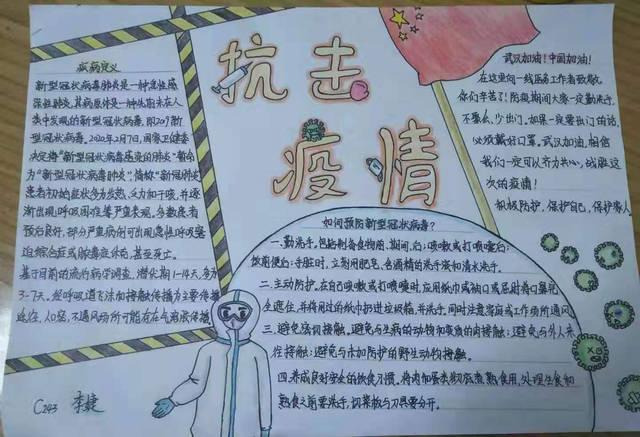 抗击
疫情
疾病定义
新型冠状病毒肺炎是一种急性感
染性肺炎,其病原体是一种先前未在人
类中发现的新型冠状病毒,即2019新
型冠状病毒。2020年2月7日,国家卫健委
决定将"新型冠状病毒感染的肺炎"暂命名
为"新型冠状病毒肺炎",简称"新冠肺炎"
患者初始症状多为发热、乏力和干咳,并逐
渐出现呼吸困难等严重表现。多数患者
预后良好,部分严重病例可出现急性呼吸窘
迫综合症或脓毒症休克,甚至死亡。
基于目前的流行病学调查,潜伏期1-14天,多为
3-7天。经呼吸道飞沫和接触传播为主要传播
途径,人口密、不通风场所可能存在气溶胶传播
武汉加油!中国加油!
在这里向一线医务工作者致敬,
你们辛苦了!防疫期间大家一定勤洗手,
不聚会,少出门。如果一定要出门的话,
必须戴好口罩。武汉加油,相信
我们一定可以齐力共心,战胜这
次的疫情!
积极防护,保护自己,保护家人
如何预防新型冠状病毒?
一.勤洗手。包括制备食物前、期间,后;咳嗽或打喷嚏后;
饮厕便后;手脏时,立刻用肥皂,含酒精的洗手液和清水洗手。
二.主动防护。在自己咳嗽或打喷嚏时,应用纸巾或袖口或屈肘将口鼻完
全遮住,并将用过的纸巾扔进垃圾箱,并洗手。同时注意家庭或工作场所通风
三.避免密切接触。避免与生病的动物和变质的肉接触;避免与外人来
往接触;避免与未加防护的野生动物接触。
四.养成良好安全的饮食习惯,将肉和蛋类彻底煮熟食用,处理生食和
熟食之前要洗手,切菜板与刀具要分开。
C243 李婕